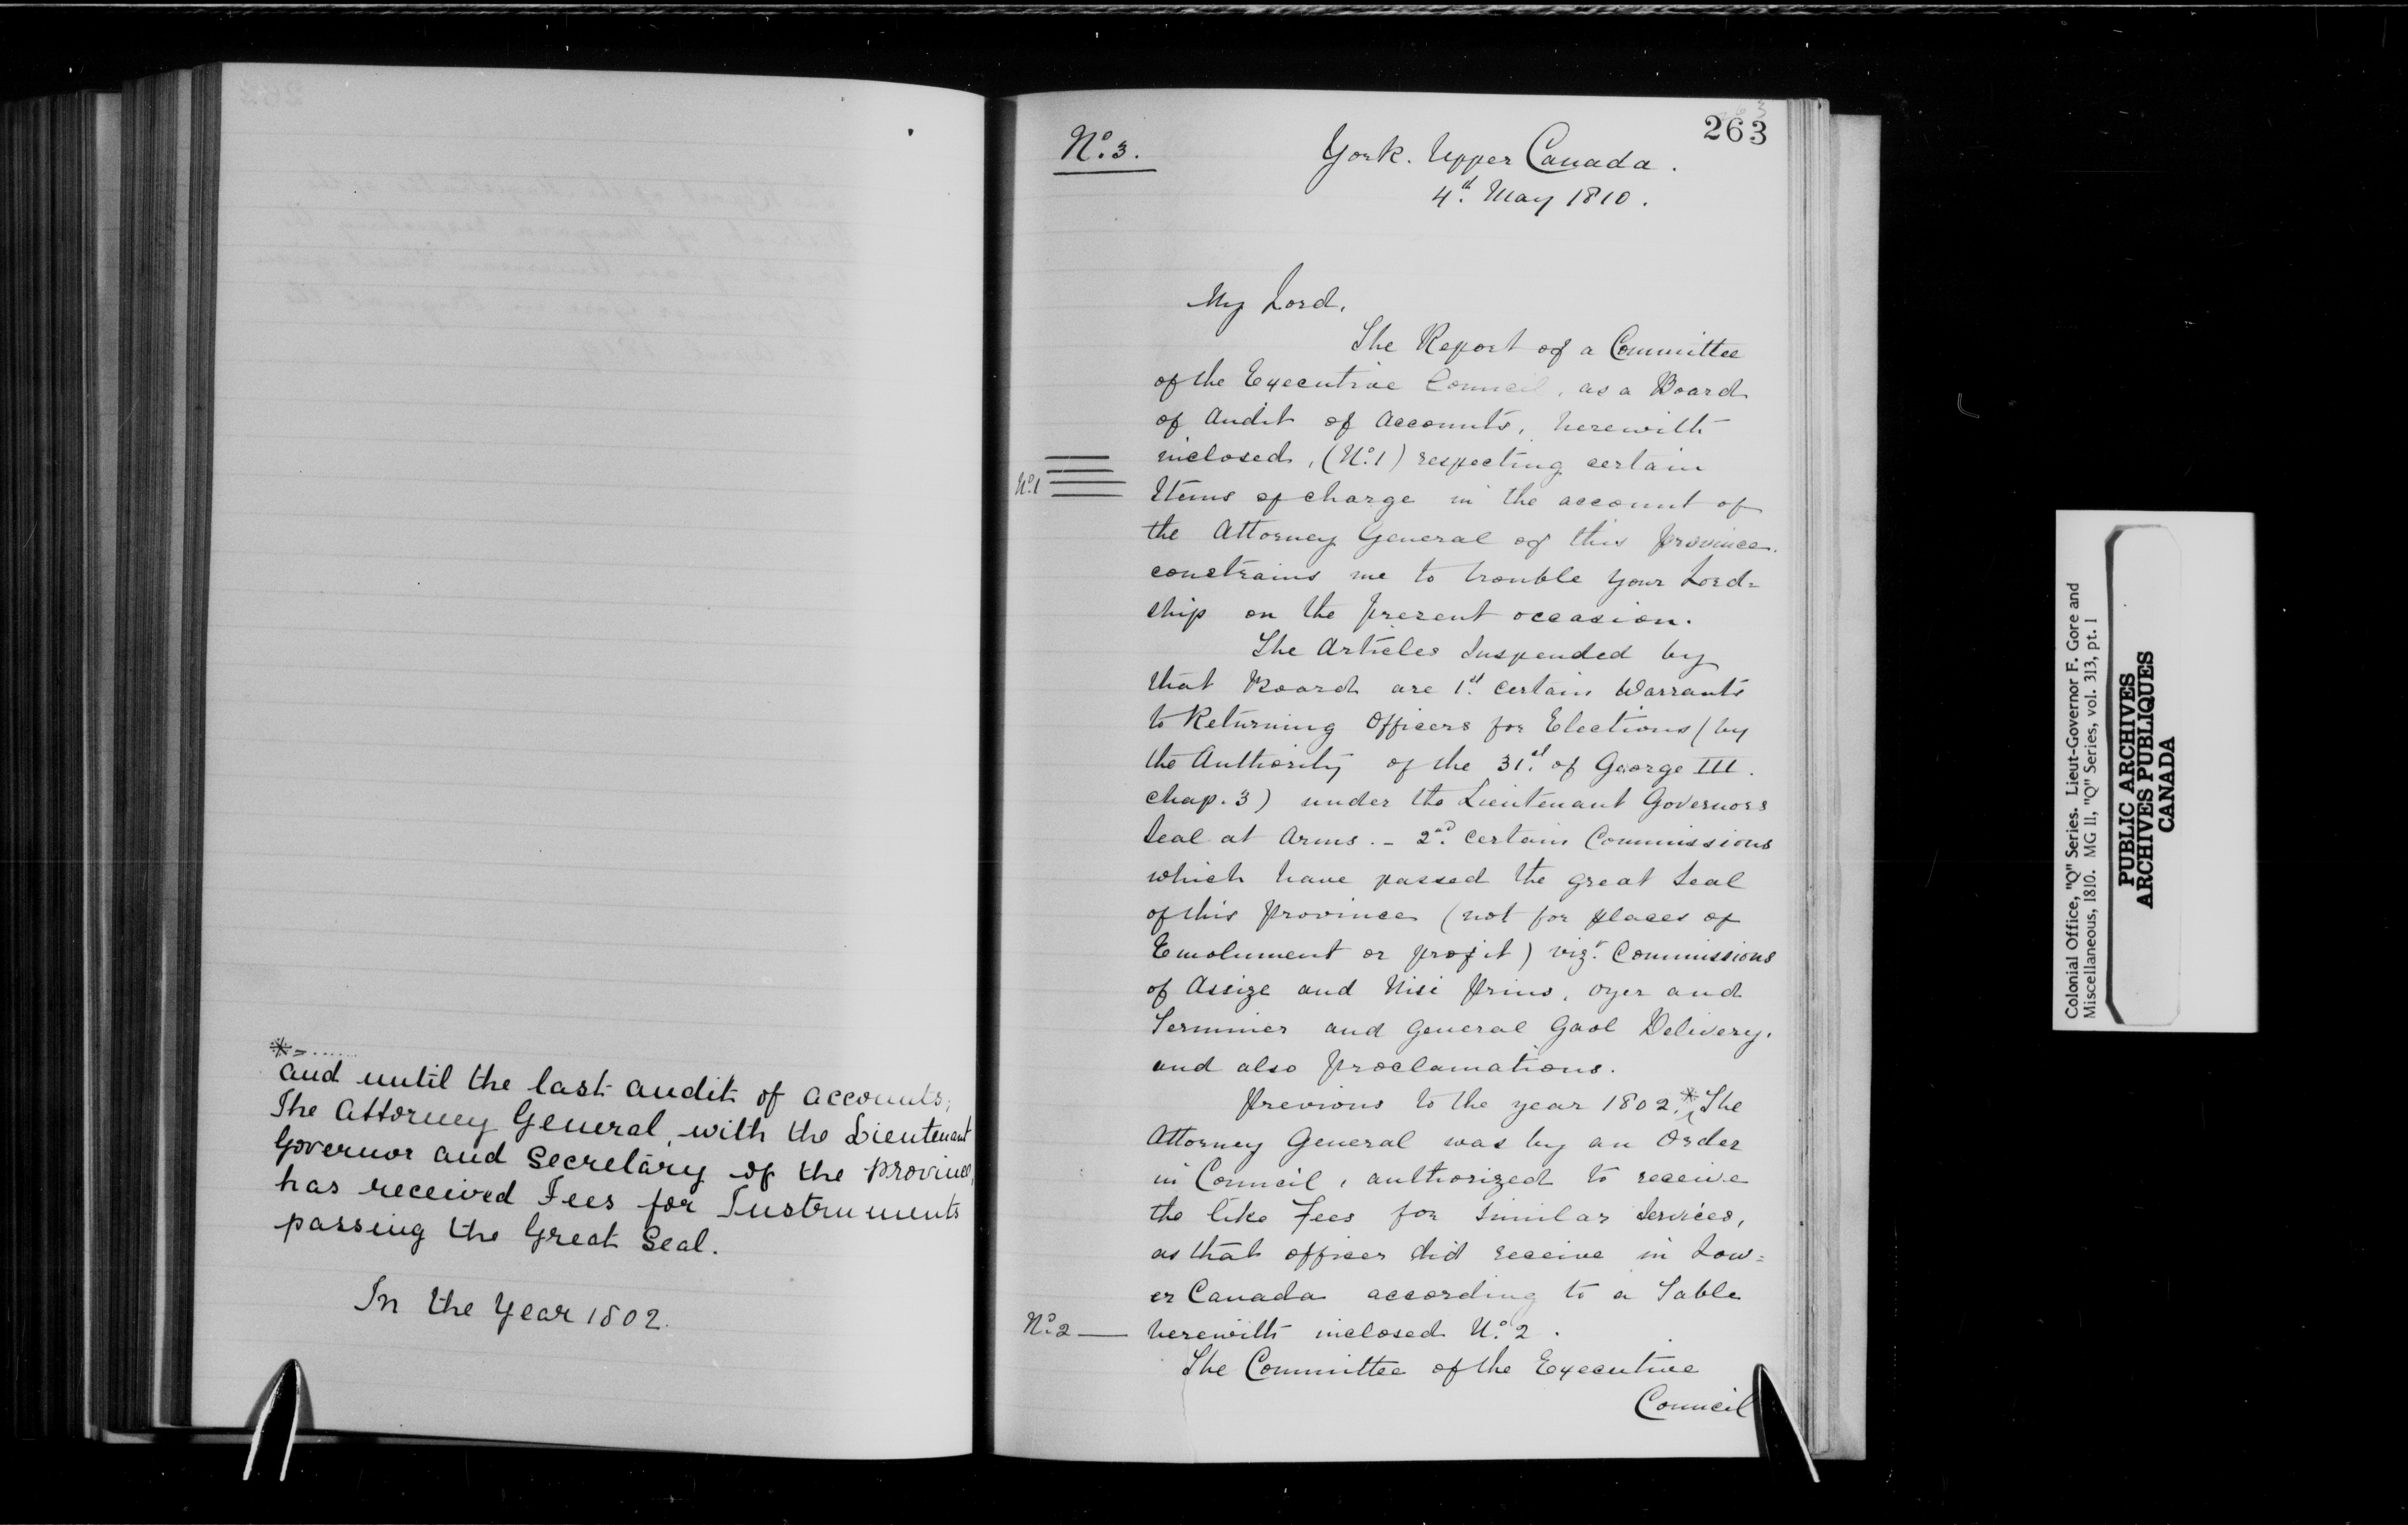 *-......
and until the last audit of accounts,
The Attorney General, with the Lieutenant
Governor and Secretary of the province,
has received Fees for Instruments
passing the Great Seal.
In the Year 1802.
263
No. 3.
York. Upper Canada.
4th. May 1810.
My Lord,
The Report of a Committee
of the Executive Council, as a Board
of Audit of Accounts, herewith
inclosed, (No. 1) respecting certain
No. 1
Items of charge in the account of
the Attorney General of this province.
constrains me to trouble your Lord=
ship on the present occasion.
The Articles suspended by
that Board are 1st. certain Warrants
to Returning Officers for Elections (by
the Authority of the 31st. of George III.
chap. 3) under the Lieutenant Governors
Seal at Arms. - 2nd. certain Commissions
which have passed the great Seal
of this province (not for places of
Emolument or profit) vizt. Commissions
of Assize and Nisi prius, oyer and
Terminer and General Gaol Delivery,
and also proclamations.
previous to the year 1802.* The
Attorney General was by an Order
in Council, authorized to receive
the like Fees for similar services,
as that officer did receive in Low=
er Canada according to a Table
No. 2 — herewith inclosed No. 2.
The Committee of the Executive
Council
Colonial Office, "Q" Series. Lieut-Governor F. Gore and
Miscellaneous, 1810. MG 11, "Q" Series, vol. 313, pt. 1
PUBLIC ARCHIVES
ARCHIVES PUBLIQUES
CANADA